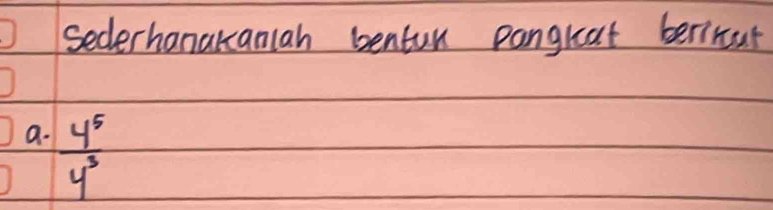 Sederhanakanlah bentuk pangkat berikut
a. y⁵/y³